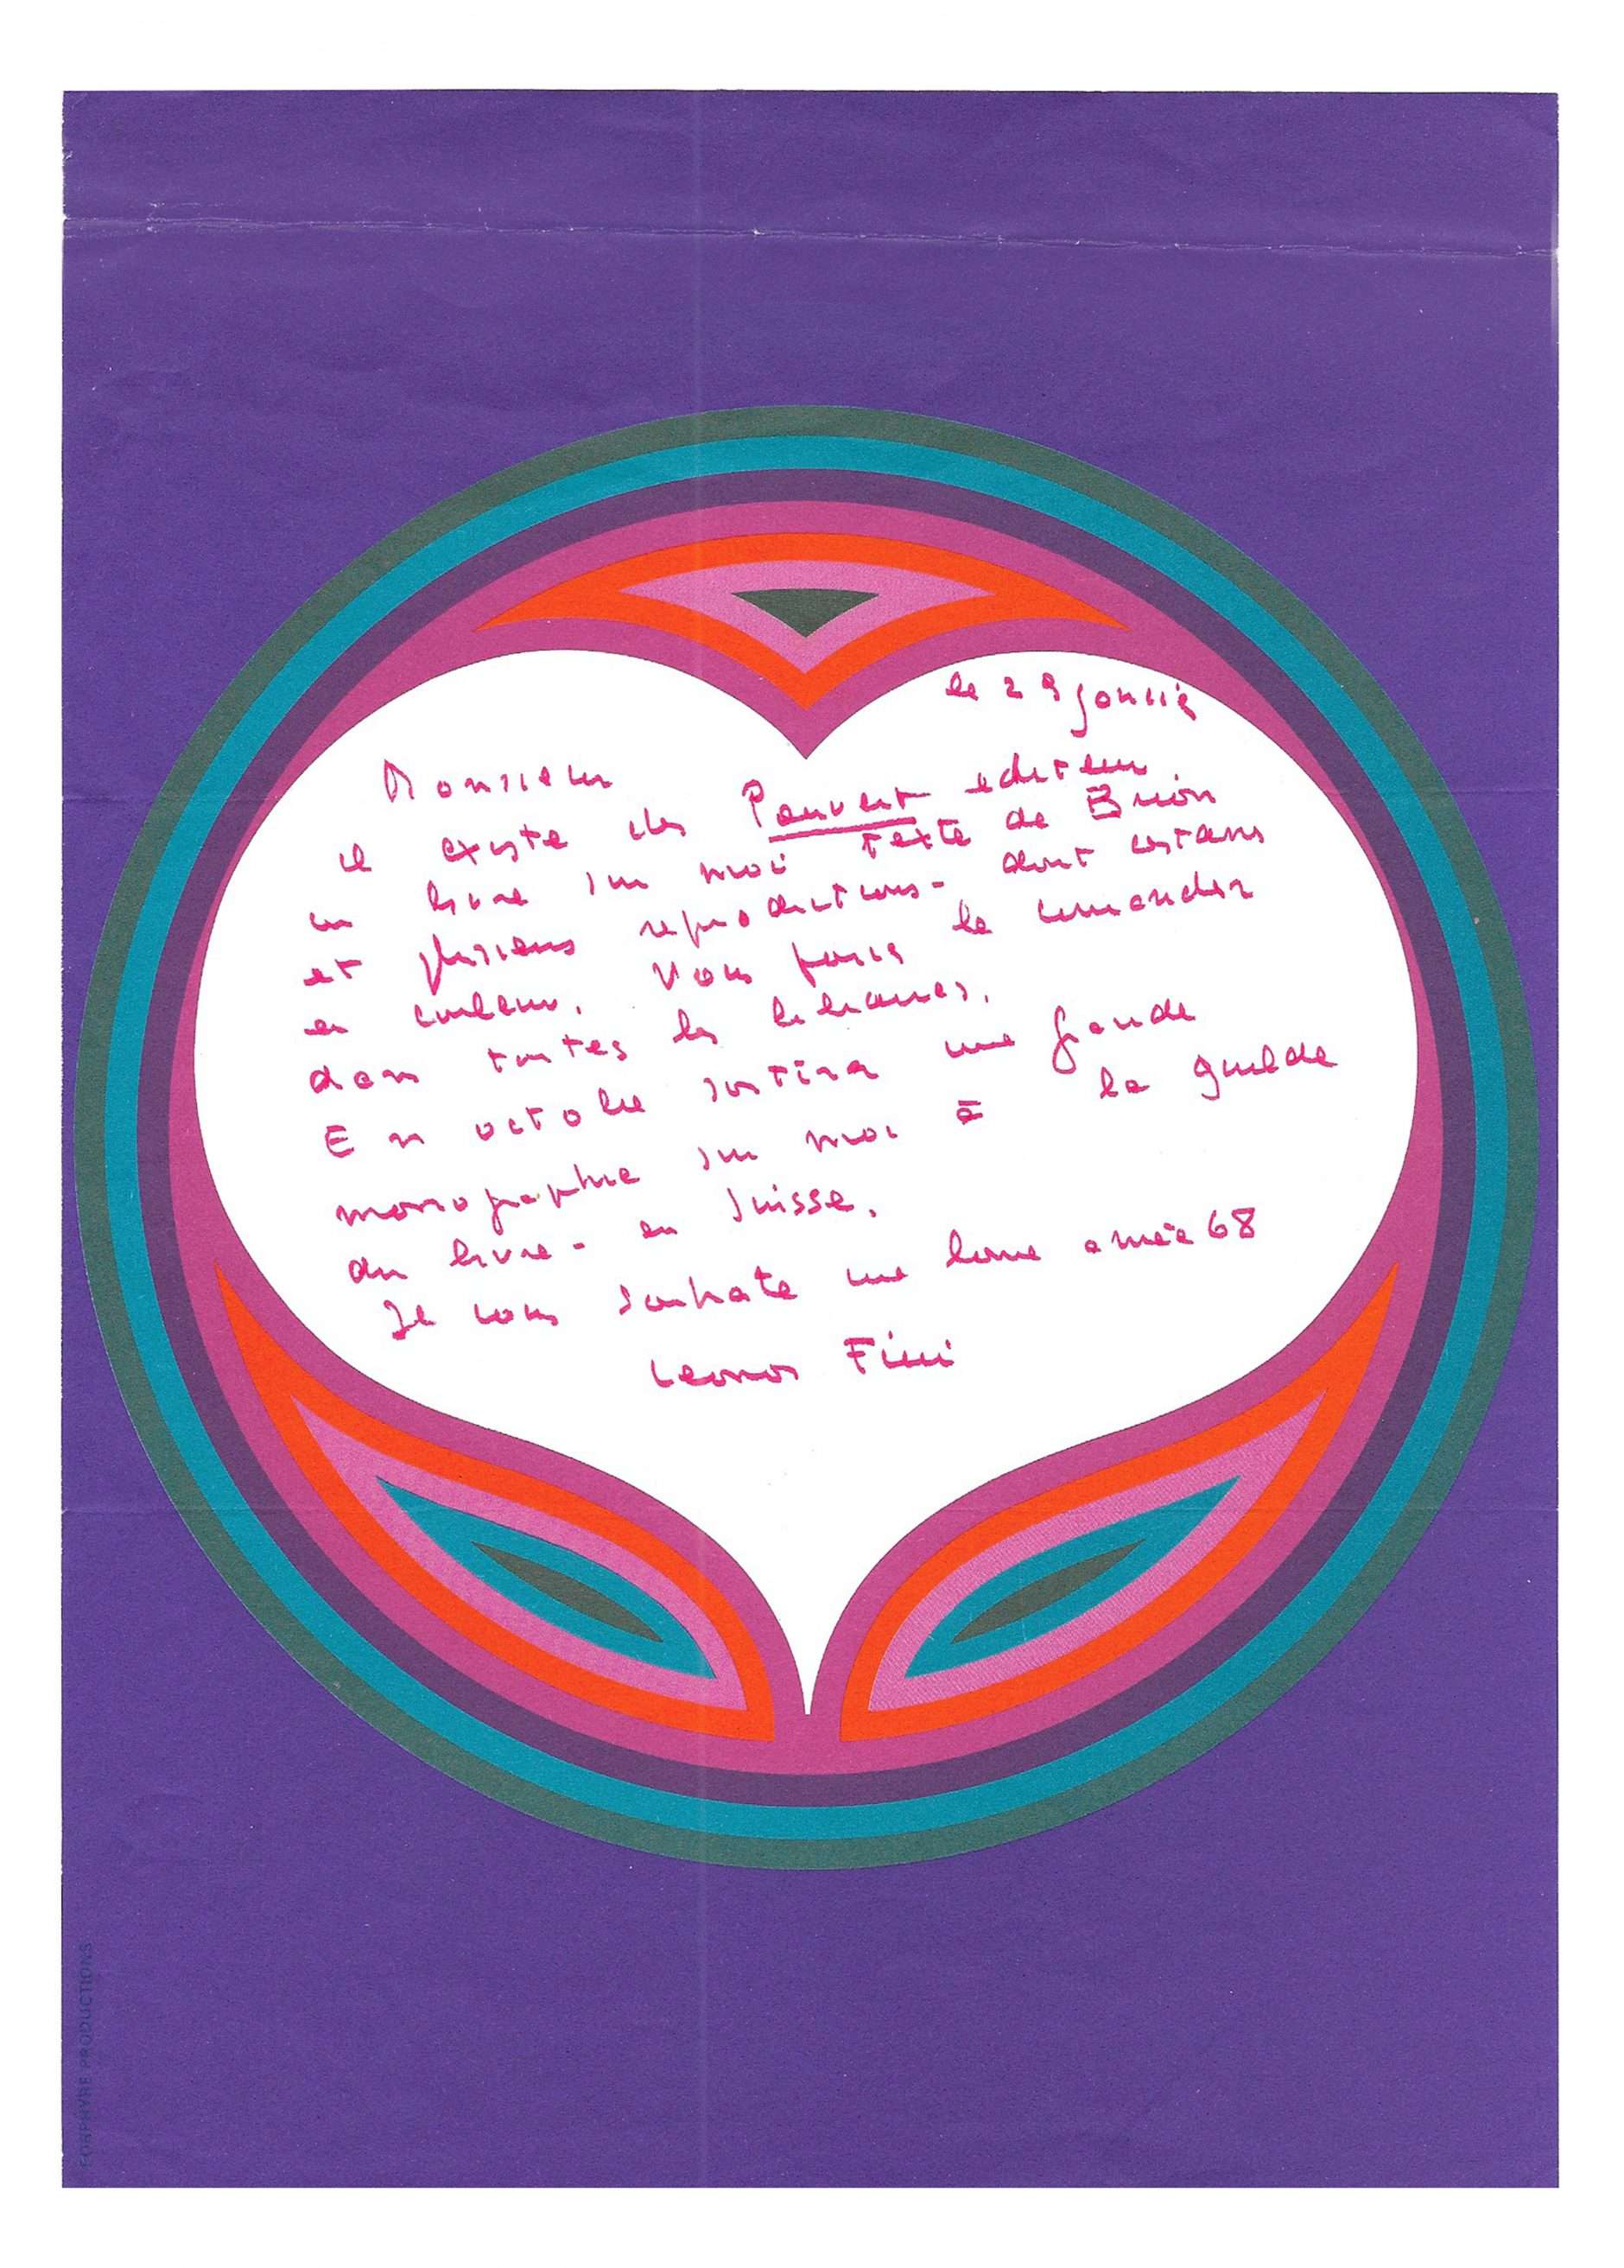 le 29 janvier
Monsieur
il existe chez Pauvert editeur
un livre sur moi texte de Brion
et plusieurs reproductions - dont certains
en couleur. Vous pouvez le commander
dans toutes les librairies.
En octobre sortira une grande
monographie sur moi à la guilde
du livre - en Suisse.
Je vous souhaite une bonne année 68
Leonor Fini
PORPHYRE PRODUCTIONS